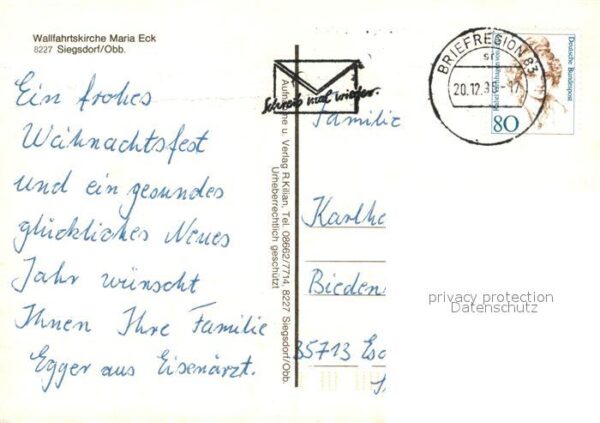 Wallfahrtskirche Maria Eck
8227 Siegsdorf/Obb.
Ein frohes
Weihnachtsfest
und ein gesundes
glückliches Neues
Jahr wünscht
Ihnen Ihre Familie
Egger aus Eisenärzt.
Aufnahme u. Verlag R.Kilian, Tel. 08662/7714, 8227 Siegsdorf/Obb.
Urheberrechtlich geschützt
Schreib mal wieder.
BRIEFREGION 83
sr
20.12.95-17
Deutsche Bundespost
80
Familie
Karlhe
Bieden
35713 Esc
privacy protection
Datenschutz